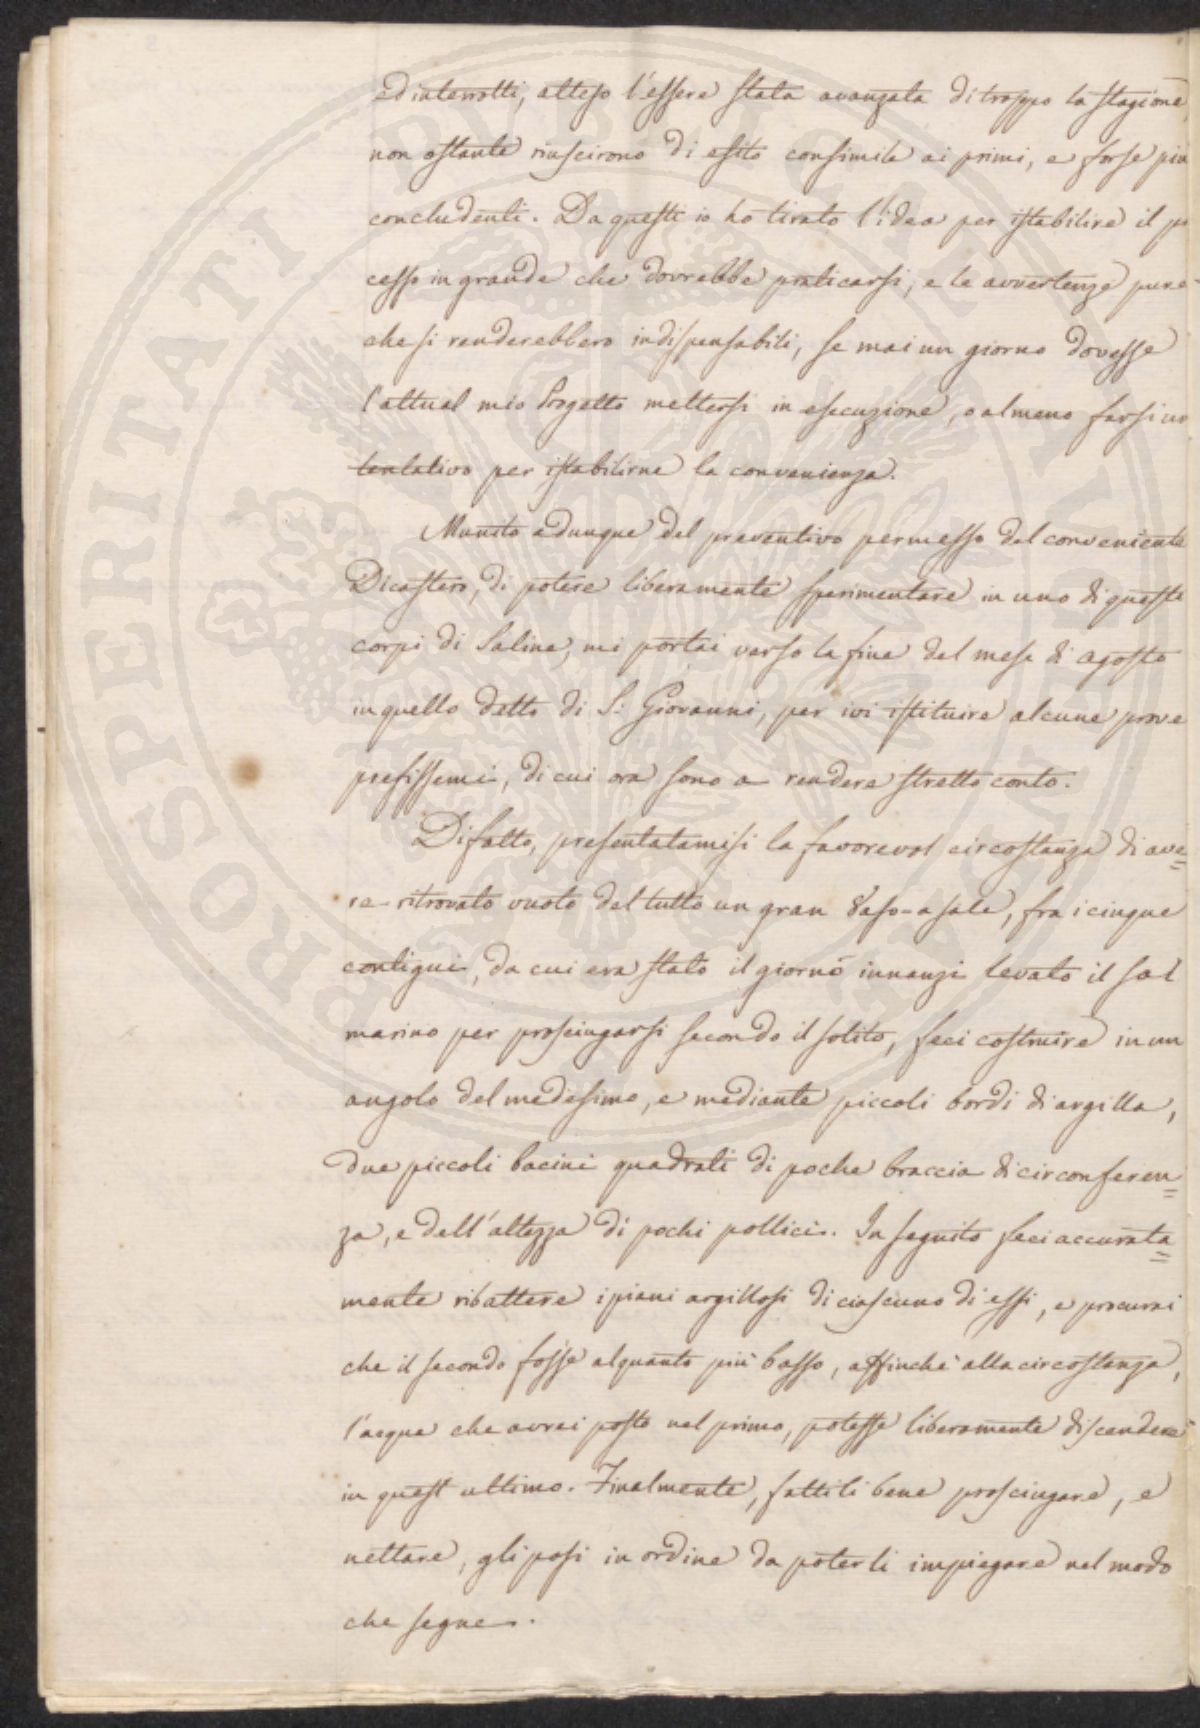 ed interrotti, atteso l'essere stata avanzata di troppo la stagione,
non ostante riuscirono di esito consimile ai primi, e forse più
concludenti. Da questi io ho tirato l'idea per istabilire il pro
cesso in grande che dovrebbe praticarsi, e le avvertenze pure
che si renderebbero indispensabili, se mai un giorno dovesse
l'attual mio Progetto mettersi in esecuzione, o almeno farsi un
tentativo per istabilirne la convenienza.
Munito adunque del preventivo permesso del conveniente
Dicastero, di potere liberamente sperimentare in uno di questi
corpi di Saline, mi portai verso la fine del mese di agosto
in quello detto di S: Giovanni, per ivi istituire alcune prove
prefissemi, di cui ora sono a rendere stretto conto.
Difatto, presentatamisi la favorevol circostanza di ave=
re ritrovato vuoto del tutto un gran Vaso-a sale, fra i cinque
contigui, da cui era stato il giorno innanzi levato il sal
marino per prosciugarsi secondo il solito, feci costruire in un
angolo del medesimo, e mediante piccoli bordi di argilla,
due piccoli bacini quadrati di poche braccia di circonferen=
za, e dell'altezza di pochi pollici. In seguito feci accurata=
mente ribattere i piani argillosi di ciascuno di essi, e procurai
che il secondo fosse alquanto più basso, affinchè alla circostanza,
l'acqua che avrei posto nel primo, potesse liberamente discendere
in quest ultimo. Finalmente, fattili bene prosciugare, e
nettare, gli posi in ordine da poterli impiegare nel modo
che segue.
PROSPERITATI PVBLICAE